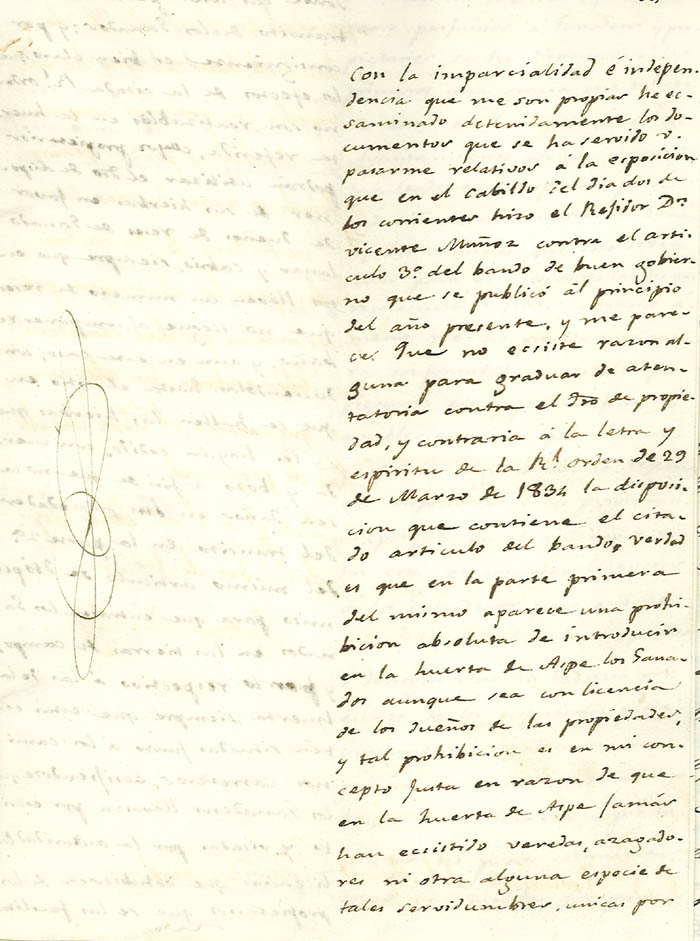 Con la imparcialidad é indepen-
dencia que me son propias he ec-
saminado detenidamente los do-
cumentos que se ha servido V.
pasarme relativos á la esposicion
que en el Cabildo del dia dos de
los corrientes hizo el Regidor Dn.
Vicente Muñoz contra el arti-
culo 3º. del bando de buen gobier-
no que se publicó ál principio
del año presente, y me pare-
ce: Que no ecsiste razon al-
guna para graduar de aten-
tatoria contra el dro de propie-
dad, y contraria á la letra y
espiritu de la Rl. orden de 29
de Marzo de 1834 la disposi-
cion que contiene el cita-
do articulo del bando, verdad
es que en la parte primera
del mismo aparece una prohi-
bicion absoluta de introducir
en la huerta de Aspe los Gana-
dos aunque sea con licencia
de los dueños de las propiedades,
y tal prohibicion es en mi con-
cepto Justa en razon de que
en la huerta de Aspe Jamás
han ecsistido veredas, azagado-
res ni otra alguna especie de
tales servidumbres, unicas por